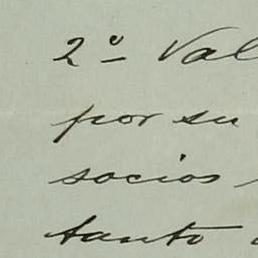 2º Val
por su
socios
tanto